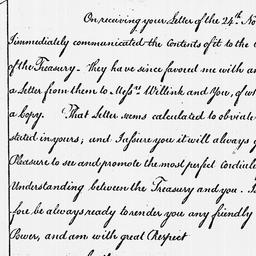 On receiving your Letter of the 24th No
I immediately communicated the Contents of it to the
of the Treasury - They have since favored me with an
a Letter from them to Messrs Willink and you, of w
a Copy. That Letter seems calculated to obviate
stated in yours; and I assure you it will always g
Pleasure to see and promote the most perfect Cordial
Understanding between the Treasury and you.
fore be always ready to render you any friendly
Power, and am with great Respect